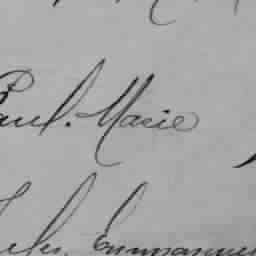 Paul. Marie
Jules. Emmanuel